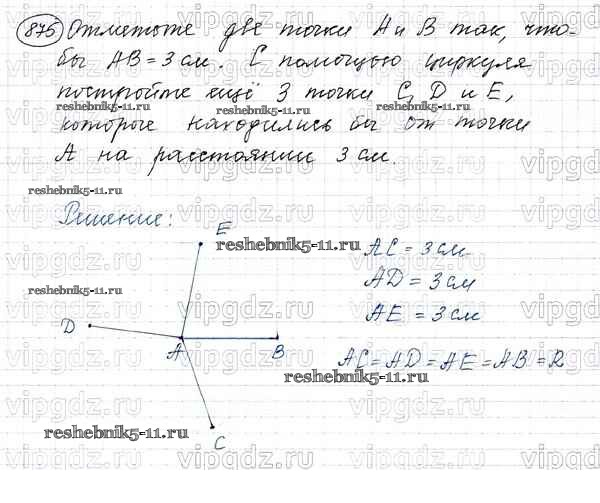 875 Отметьте две точки A и B так, что-
бы AB = 3 см. С помощью циркуля
постройте ещё 3 точки C, D и E,
которые находились бы от точки
A на расстоянии 3 см.
Решение:
E
AC = 3 см
AD = 3 см
AE = 3 см
D
A
B
AC = AD = AE = AB = R
C
reshebnik5-11.ru
reshebnik5-11.ru
reshebnik5-11.ru
reshebnik5-11.ru
reshebnik5-11.ru
reshebnik5-11.ru
reshebnik5-11.ru
vipgdz.ru